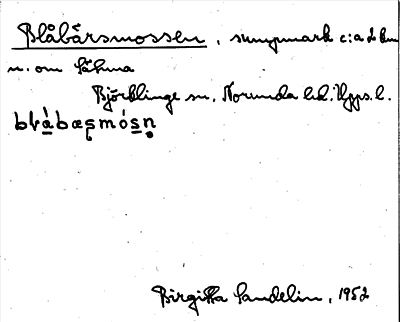 Blåbärsmossen, sumpmark c:a 2 km
n. om Sätuna
Björklinge sn, Norunda hd. Upps. l.
blåbæʂmósn̥
Birgitta Sandelin, 1952